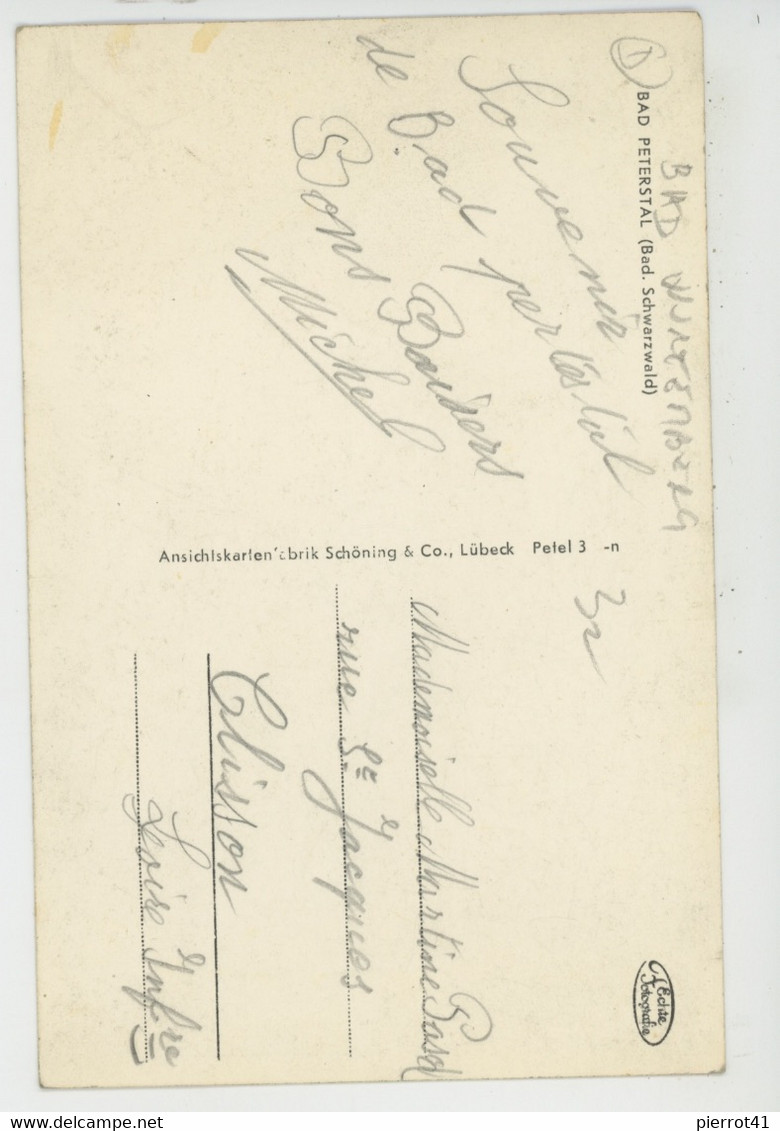 BAD PETERSTAL (Bad. Schwarzwald)
BAD WURTEMBERG
Souvenir
de Bad pertestal
Bons Baisers
Michel
Ansichtskarten brik Schöning & Co., Lübeck Petel 3 -n
32
Mademoiselle Martine
rue St Jacques
Clisson
Loire Infre
Echte
Fotografie
pierrot41